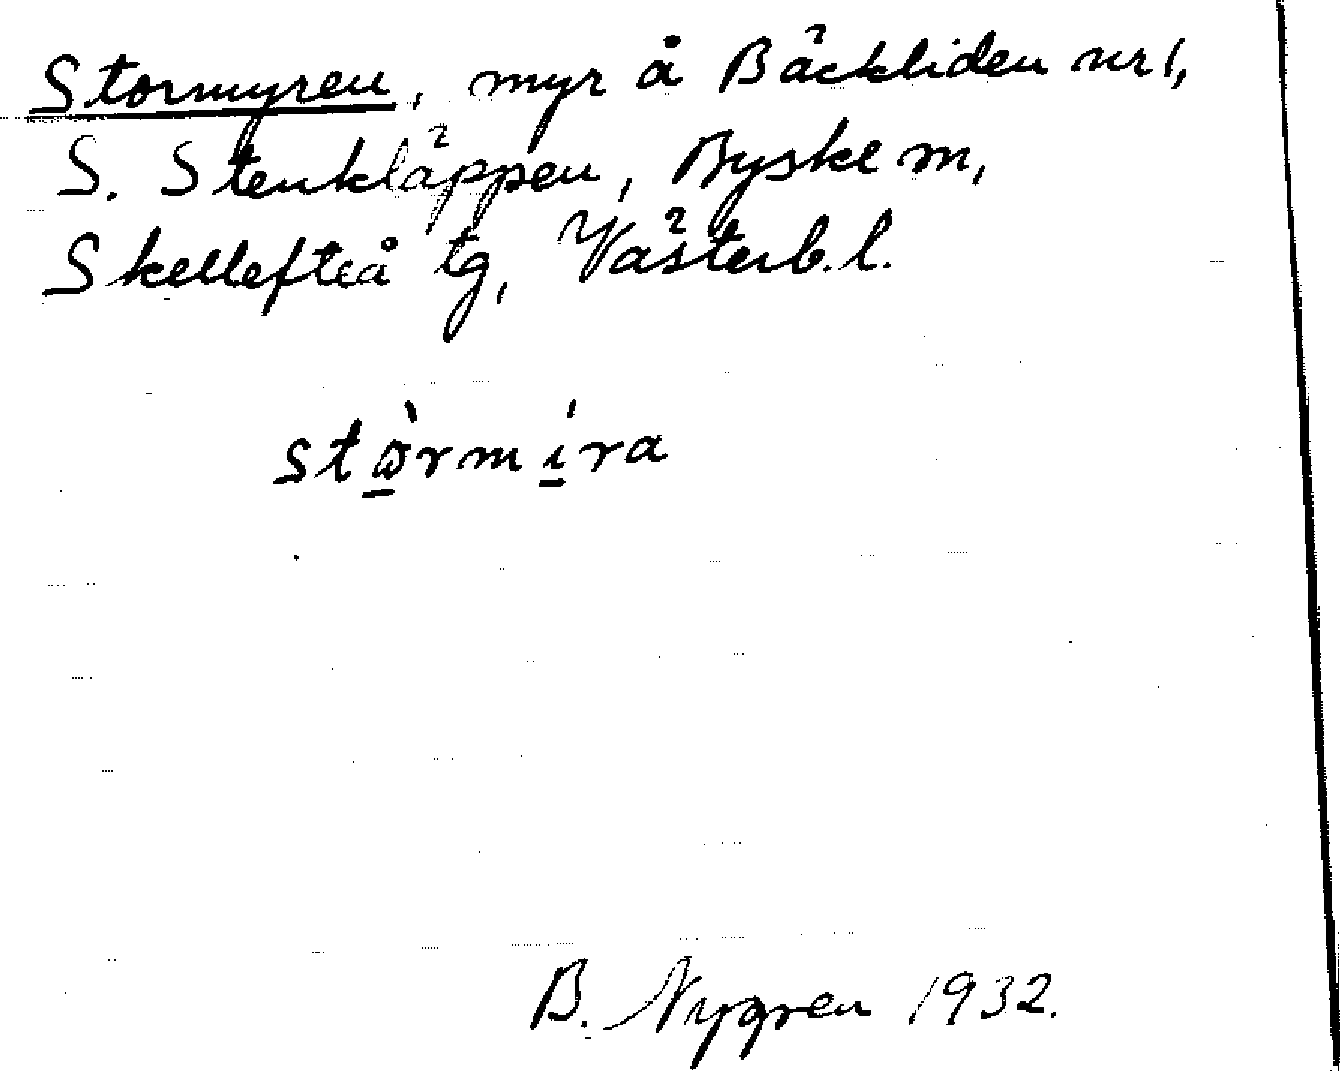 Stormyren, myr å Bäckliden nr 1,
S. Stenkläppen, Byske sn,
Skellefteå tg, Västerb. l.
stòrmíra
B. Nygren 1932.